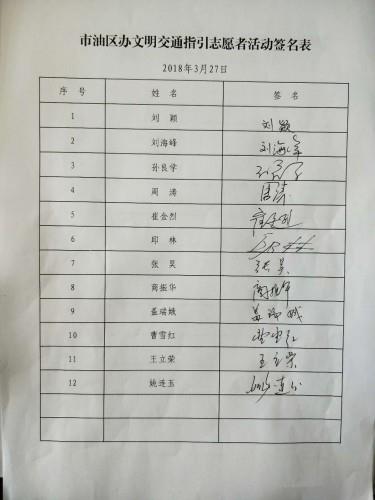 市油区办文明交通指引志愿者活动签名表
2018年3月27日
序 号 姓 名 签 名
1 刘 颖 刘颖
2 刘海峰 刘海峰
3 孙良学
4 周 涛 周涛
5 崔金烈 崔金烈
6 邱 林 邱林
7 张 昊 张昊
8 商振华
9 孟瑞娥
10 曹雪红 曹雪红
11 王立荣 王立荣
12 姚连玉 姚连玉